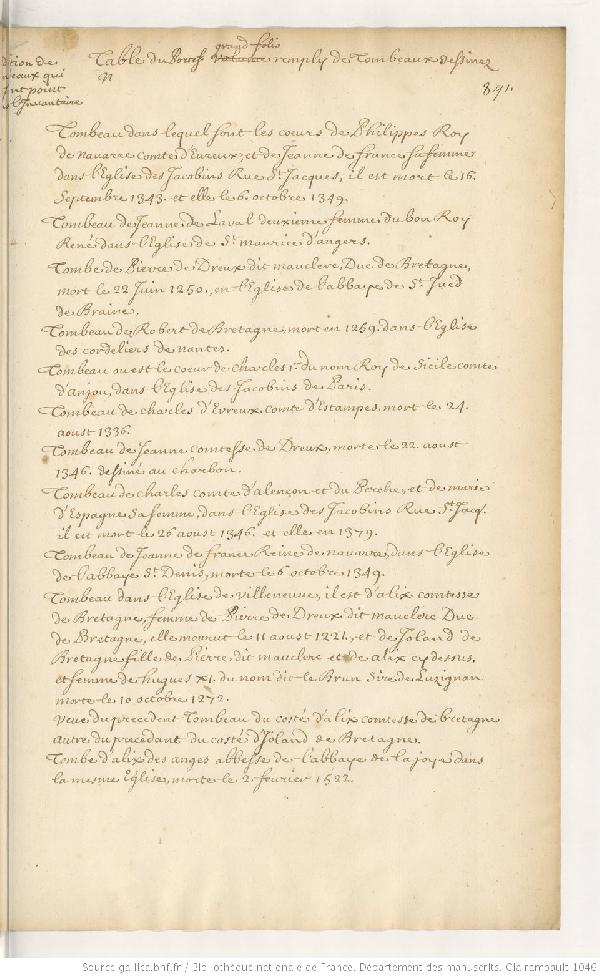 grand folio
Table du Portef. volume remply de Tombeaux dessinez
391.
Tombeau dans lequel sont les coeurs de Philippes Roy
de navarre comte d'Evreux, et de Jeanne de france sa femme
dans l'Eglise des Jacobins Rue St. Jacques, il est mort le 16.
Septembre 1343. et elle le 6. octobre 1349.
Tombeau de Jeanne de Laval deuxieme femme du bon Roy
René dans l'Eglise de St. maurice d'angers.
Tombe de Pierre de Dreux dit mauclerc, Duc de Bretagne,
mort le 22 Juin 1250. en l'Eglise de l'abbaye de St. Jued
de Braine.
Tombeau de Robert de Bretagne, mort en 1259. dans l'Eglise
des cordeliers de nantes.
Tombeau ou est le coeur de charles 1r. du nom Roy de Sicile comte
d'anjou, dans l'Eglise des Jacobins de Paris.
Tombeau de charles d'Evreux comte d'Estampes, mort le 24.
aoust 1336.
Tombeau de Jeanne comtesse de Dreux, morte le 22. aoust
1346. dessiné au charbon.
Tombeau de charles comte d'alençon et du Perche, et de marie
d'Espagne sa femme, dans l'Eglise des Jacobins Rue St. Jacq.
il est mort le 26 aoust 1346. et elle en 1379.
Tombeau de Jeanne de france Reine de navarre, dans l'Eglise
de l'abbaye St. Denis, morte le 6 octobre 1349.
Tombeau dans l'Eglise de villeneuve, il est d'alix comtesse
de Bretagne, femme de Pierre de Dreux dit mauclerc Duc
de Bretagne, elle mourut le 11 aoust 1221, et de Joland de
Bretagne fille de Pierre dit mauclerc et de alix cy dessus,
et femme de hugues XI. du nom dit le Brun Sire de Luzignan
morte le 10 octobre 1272.
veue du precedent Tombeau du costé d'alix comtesse de bretagne
autre du precedent du costé d'Joland de Bretagne.
Tombe d'alix des anges abbesse de l'abbaye de la joye dans
la mesme Eglise, morte le 2 fevrier 1522.
dition de
beaux qui
sont point
l'Inventaire
Source gallica.bnf.fr / Bibliothèque nationale de France. Département des manuscrits. Clairambault 1046